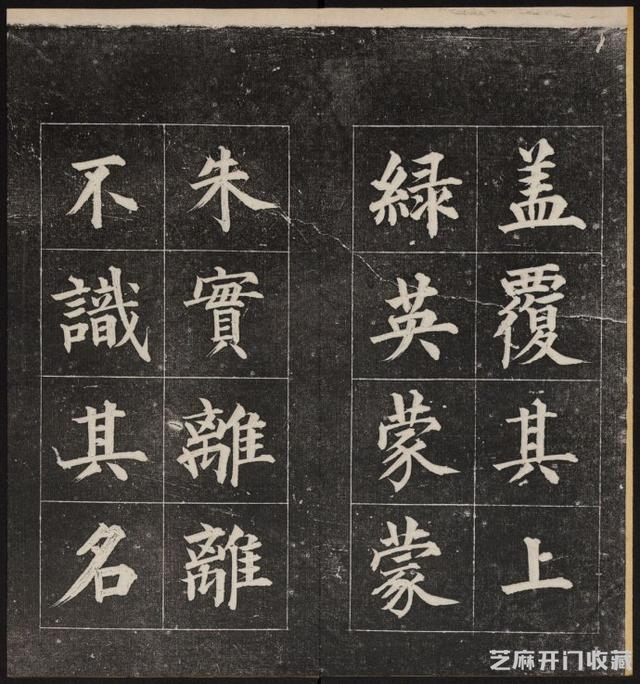 盖覆其上
緑英蒙蒙
朱實離離
不識其名
芝麻开门收藏